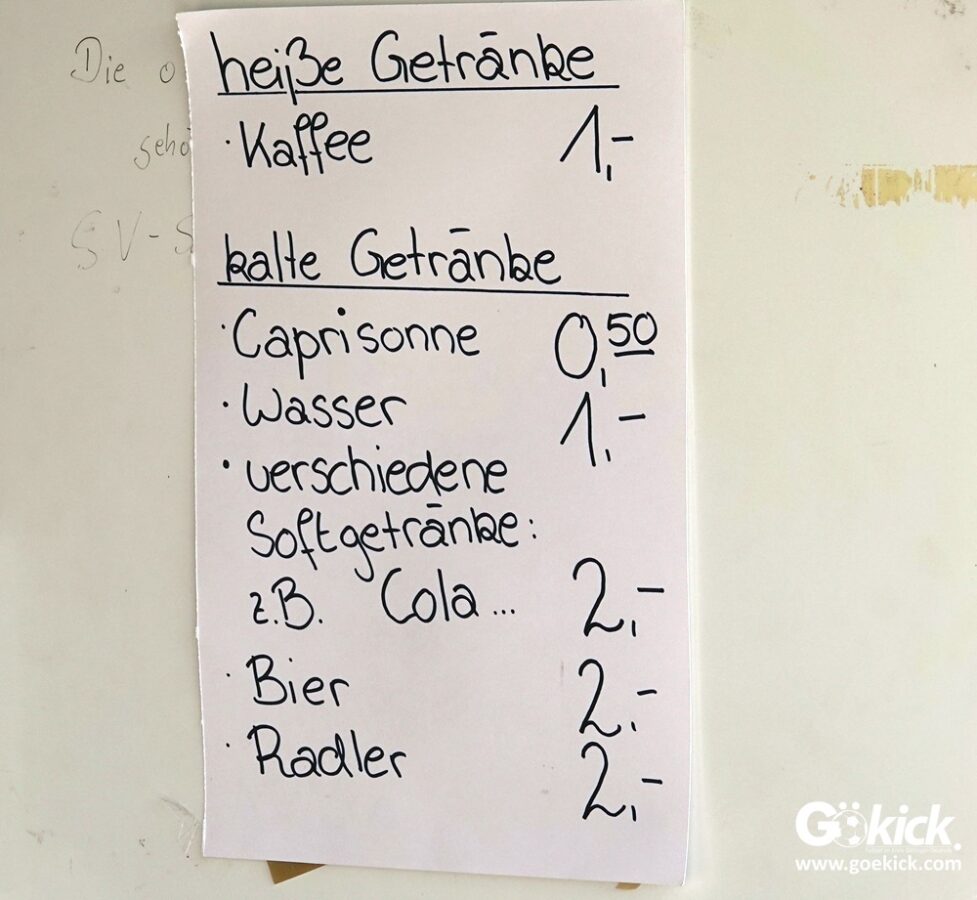 Die
heiße Getränke
· Kaffee 1,-
kalte Getränke
· Caprisonne 0,50
· Wasser 1,-
· verschiedene
Softgetränke:
z.B. Cola... 2,-
· Bier 2,-
· Radler 2,-
Gökick.
www.goekick.com